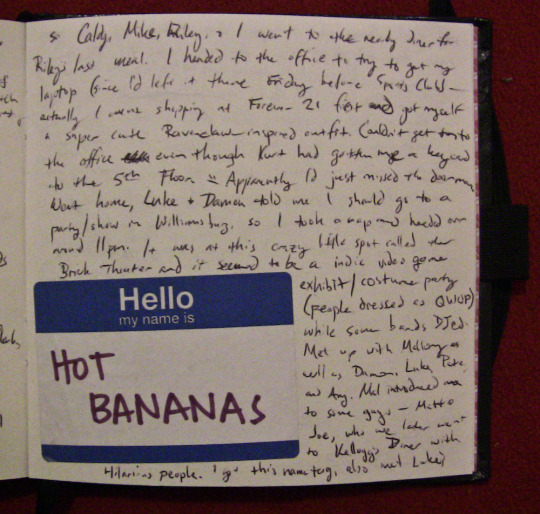 so Caldy, Mike, Riley, & I went to the nearby diner for
Riley's last meal. I headed to the office to try to get my
laptop (since I'd left it there Friday before Sports Club —
actually I went shopping at Forever 21 first and got myself
a super cute Ravenclaw-inspired outfit. Couldn't get into
the office even though Kurt had gotten me a keycard
to the 5th Floor :( Apparently I'd just missed the doorman.
Went home, Luke & Damon told me I should go to a
party/show in Williamsburg, so I took a nap and headed over
around 11pm. It was at this crazy little spot called the
Brick Theater and it seemed to be a indie video game
exhibit/costume party
(people dressed as
while some bands DJed.
Met up with Mallory as
well as Damon, Luke, Pete,
and Amy. Mal introduced me
to some guys — Matt &
Joe, who we later went
to Kellogg's Diner with
Hilarious people. I got this nametag, also met Luke's
Hello
my name is
HOT
BANANAS